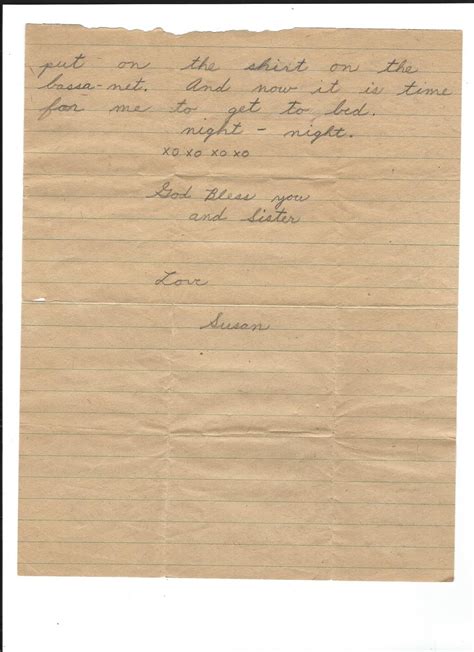 put on the skirt on the
bassa-net. And now it is time
for me to get to bed.
night - night.
xo xo xo xo
God Bless you
and Sister
Love
Susan